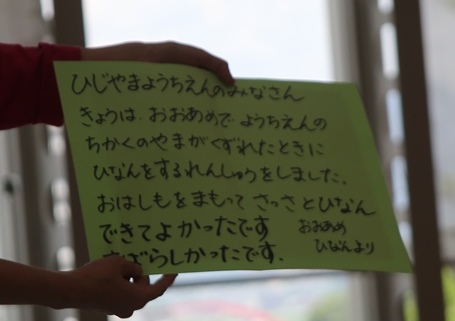 ひじやまようちえんのみなさん
きょうは、おおあめで ようちえんの
ちかくのやまがくずれたときに
ひなんをするれんしゅうをしました。
おはしもをまもって さっさとひなん
できてよかったです
すばらしかったです。
おおあめ
ひなんより